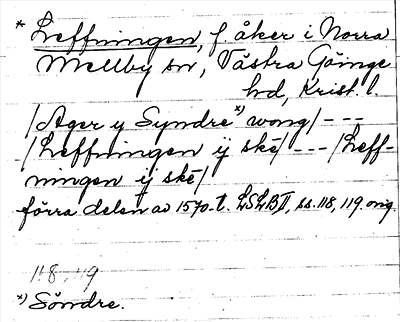 * Leffningen, f. åker i Norra
Mellby sn, Västra Göinge
hd, Krist. l.
/Ager y Syndre *) wong/ - - -
/Leffningen ÿ ske/ - - - /Leff-
ningen ÿ ske/
förra delen av 1570-t. LSLB II, ss. 118, 119. orig.
118, 119
*) Söndre.